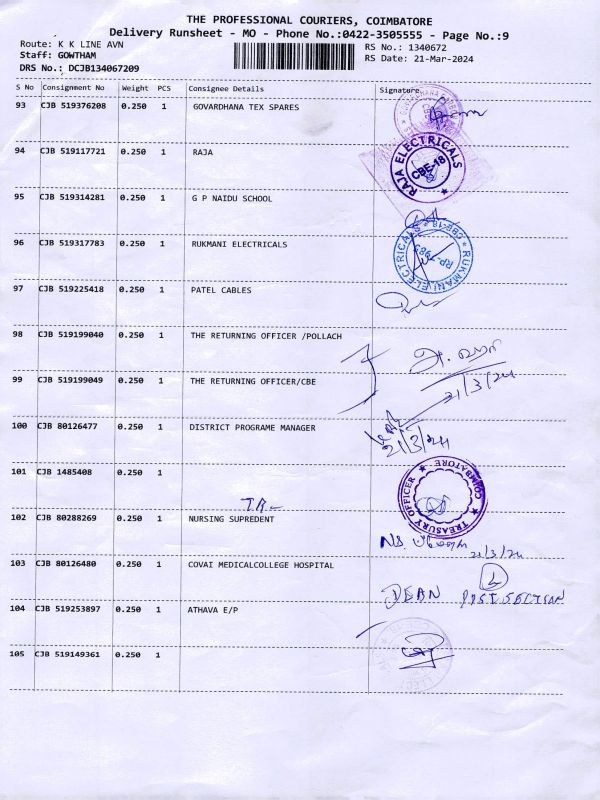 THE PROFESSIONAL COURIERS, COIMBATORE
Delivery Runsheet - MO - Phone No.:0422-3505555 - Page No.:9
Route: K K LINE AVN
RS No.: 1340672
Staff: GOWTHAM
RS Date: 21-Mar-2024
DRS No.: DCJB134067209
S No Consignment No Weight PCS Consignee Details Signature
93 CJB 519376208 0.250 1 GOVARDHANA TEX SPARES
94 CJB 519117721 0.250 1 RAJA
RAJA ELECTRICALS
CBE-18
95 CJB 519314281 0.250 1 G P NAIDU SCHOOL
96 CJB 519317783 0.250 1 RUKMANI ELECTRICALS
RUKMANI ELECTRICALS CBE-18
97 CJB 519225418 0.250 1 PATEL CABLES
98 CJB 519199040 0.250 1 THE RETURNING OFFICER /POLLACH
99 CJB 519199049 0.250 1 THE RETURNING OFFICER/CBE
21/3/24
100 CJB 80126477 0.250 1 DISTRICT PROGRAME MANAGER
21/3/24
101 CJB 1485408 0.250 1
TREASURY OFFICER COIMBATORE
102 CJB 80288269 0.250 1 NURSING SUPREDENT
21/3/24
103 CJB 80126480 0.250 1 COVAI MEDICALCOLLEGE HOSPITAL
DEAN
104 CJB 519253897 0.250 1 ATHAVA E/P
105 CJB 519149361 0.250 1